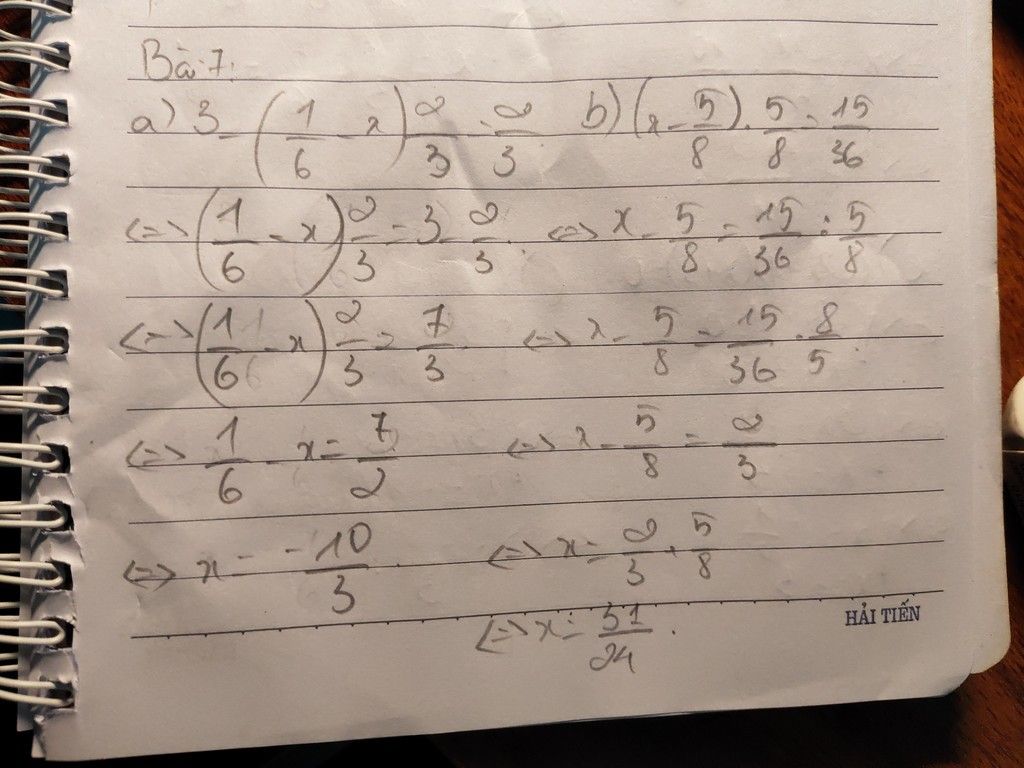 Bài 7:
a) 3 - (1/6 - x) 2/3 = 2/3 b) (x - 5/8) . 5/8 = 15/36
<=> (1/6 - x) 2/3 = 3 - 2/3 <=> x - 5/8 = 15/36 : 5/8
<=> (1/6 - x) 2/3 = 7/3 <=> x - 5/8 = 15/36 . 8/5
<=> 1/6 - x = 7/2 <=> x - 5/8 = 2/3
<=> x = -10/3 <=> x = 2/3 + 5/8
<=> x = 31/24 .
HẢI TIẾN